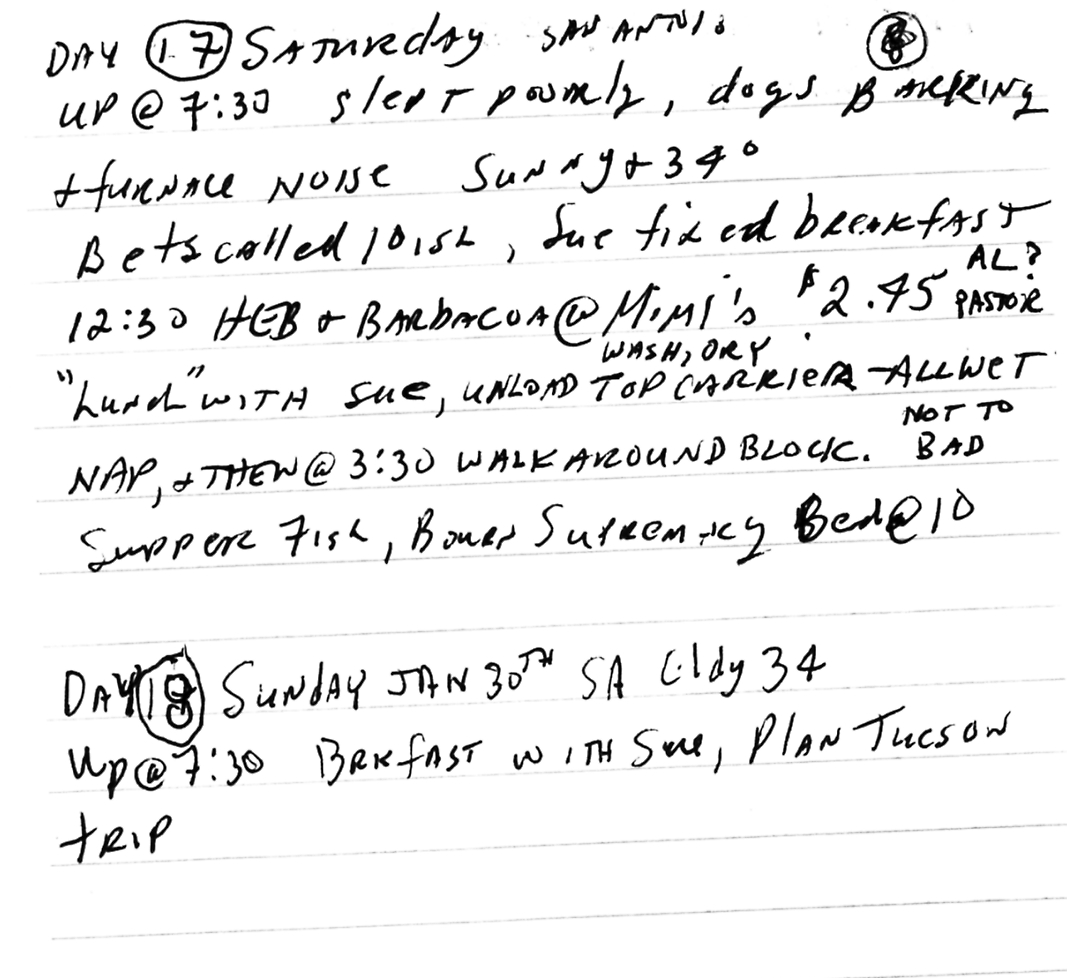 DAY 17 SATURDAY SAN ANTNIO 8
UP @ 7:30 slept poorly, dogs BARKING
+ fURNACE NOISE Sunny + 34°
Bets called 10ish, Sue fixed bREAKfAST
12:30 HEB + BARbACOA @ MiMI's $2.45 AL? PASTOR
WASH, DRY
"Lunch" WITH sue, UNLOAD TOP CARRIER - ALL WET
NAP, + THEN @ 3:30 WALK AROUND BLOCK. NOT TO BAD
Supper Fish, Bourn Supremacy Bed @ 10
DAY 18 SUNDAY JAN 30TH SA Cldy 34
Up @ 7:30 BRKfAST WITH Sue, PLAN TUCSON
tRIP